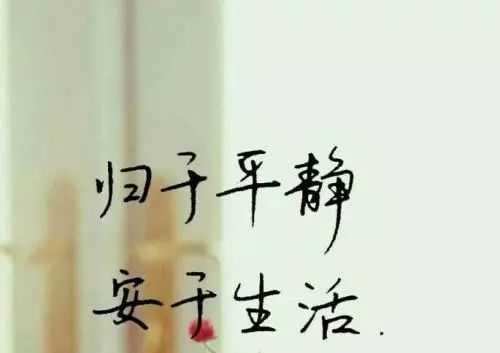 归于平静
安于生活.